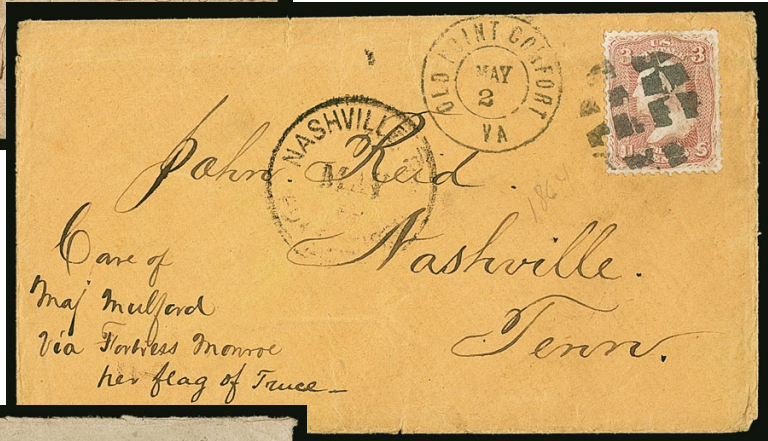 OLD POINT COMFORT
MAY
2
VA
3 U.S. 3
NASHVILLE
John Reid.
1864
Nashville.
Tenn.
Care of
Maj Mulford
Via Fortress Monroe
per flag of Truce